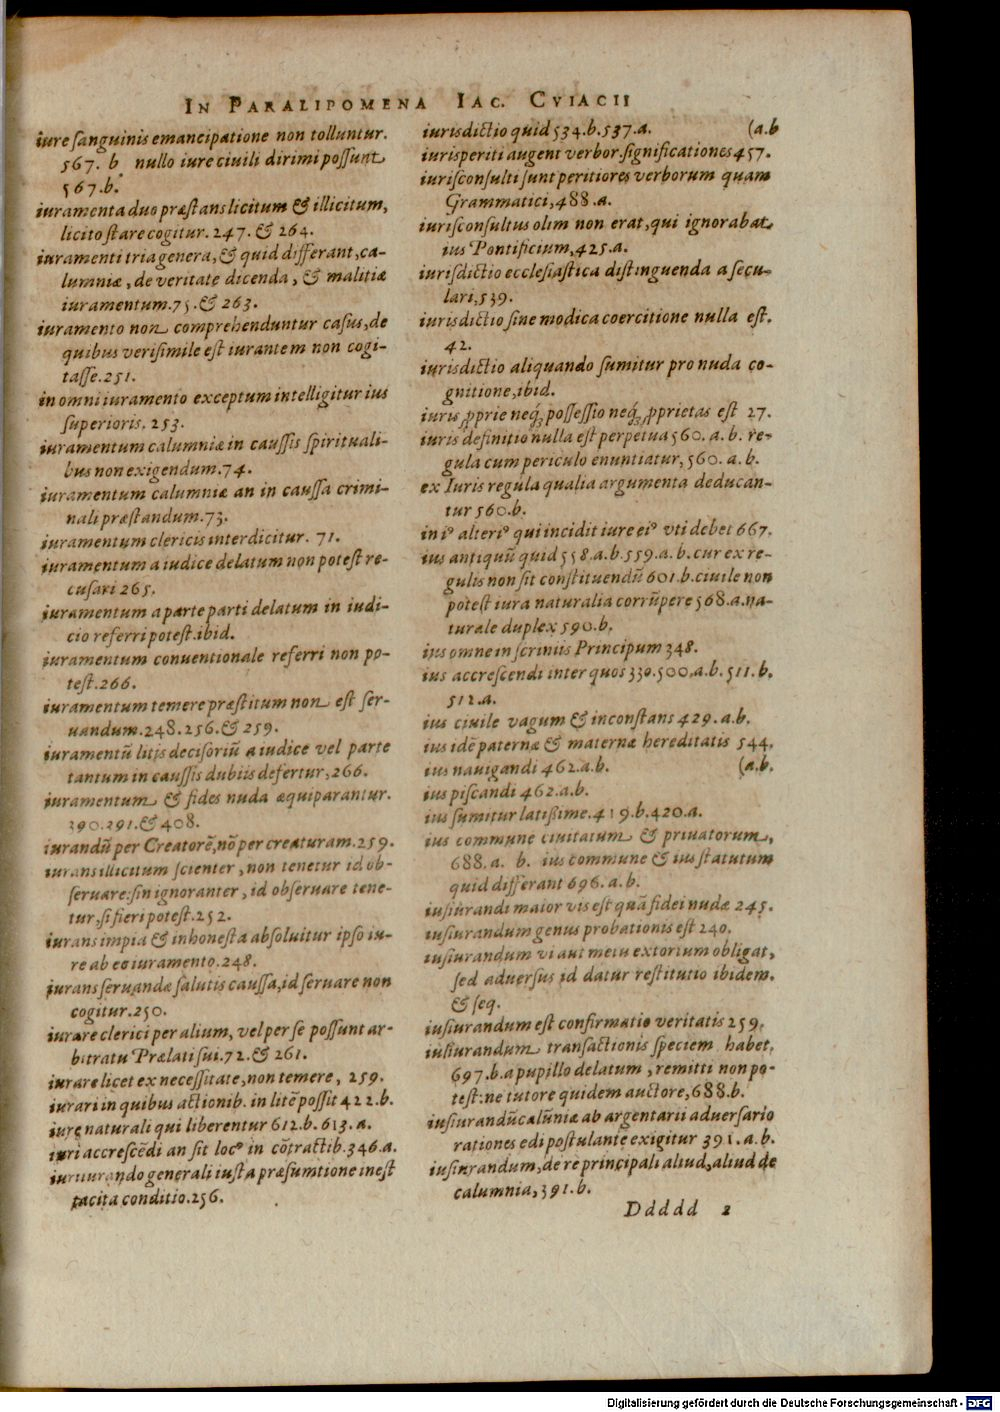 IN PARALIPOMENA IAC. CVIACII
iure sanguinis emancipatione non tolluntur.
567. b nullo iure ciuili dirimi possunt
567.b.
iuramenta duo præstans licitum & illicitum,
licito stare cogitur. 247. & 264.
iuramenti tria genera, & quid differant, ca-
lumniæ, de veritate dicenda, & malitiæ
iuramentum.75.& 263.
iuramento non comprehenduntur casus, de
quibus verisimile est iurantem non cogi-
tasse.251.
in omni iuramento exceptum intelligitur ius
superioris. 253.
iuramentum calumniæ in caussis spirituali-
bus non exigendum.74.
iuramentum calumniæ an in caussa crimi-
nali præstandum.73.
iuramentum clericis interdicitur. 71.
iuramentum a iudice delatum non potest re-
cusari 265.
iuramentum a parte parti delatum in iudi-
cio referri potest.ibid.
iuramentum conuentionale referri non po-
test.266.
iuramentum temere præstitum non est ser-
uandum.248.256.& 259.
iuramentũ litis decisoriũ a iudice vel parte
tantum in caussis dubiis defertur, 266.
iuramentum & fides nuda æquiparantur.
390.291.& 408.
iurandũ per Creatorẽ, nõ per creaturam.259.
iurans illicitum scienter, non tenetur id ob-
seruare: sin ignoranter, id obseruare tene-
tur, si fieri potest.252.
iurans impia & inhonesta absoluitur ipso iu-
re ab eo iuramento.248.
iurans seruandæ salutis caussa, id seruare non
cogitur.250.
iurare clerici per alium, vel per se possunt ar-
bitratu Prælati sui.72.& 261.
iurare licet ex necessitate, non temere, 259.
iurari in quibus actionib. in litẽ possit 422.b.
iure naturali qui liberentur 612.b. 613.a.
iuri accrescẽdi an sit locꝰ in cõtractib.346.a.
iuriurando generali iusta præsumtione inest
tacita conditio.256.
iurisdictio quid 534.b.537.a. (a.b
iurisperiti augent verbor. significationes 457.
iurisconsulti sunt peritiores verborum quam
Grammatici, 488.a.
iurisconsultus olim non erat, qui ignorabat
ius Pontificium, 425.a.
iurisdictio ecclesiastica distinguenda a secu-
lari, 539.
iurisdictio sine modica coercitione nulla est.
42.
iurisdictio aliquando sumitur pro nuda co-
gnitione, ibid.
iuris ꝓprie neq́; possessio neq́; ꝓprietas est 27.
iuris definitio nulla est perpetua 560. a. b. re-
gula cum periculo enuntiatur, 560. a. b.
ex Iuris regula qualia argumenta deducan-
tur 560.b.
in iꝰ alteriꝰ qui incidit iure eiꝰ vti debet 667.
ius antiquũ quid 558.a.b.559.a.b.cur ex re-
gulis non sit constituendũ 601.b.ciuile non
potest iura naturalia corrũpere 568.a.na-
turale duplex 590.b.
ius omne in scriniis Principum 348.
ius accrescendi inter quos 330.500.a.b.511.b.
512.a.
ius ciuile vagum & inconstans 429.a.b.
ius idẽ paternæ & maternæ hereditatis 544.
ius nauigandi 462.a.b. (a.b.
ius piscandi 462.a.b.
ius sumitur latissime.419.b.420.a.
ius commune ciuitatum & priuatorum,
688.a. b. ius commune & ius statutum
quid differant 696.a.b.
iusiurandi maior vis est quã fidei nudæ 245.
iusiurandum genus probationis est 240.
iusiurandum vi aut metu extortum obligat,
sed aduersus id datur restitutio ibidem.
& seq.
iusiurandum est confirmatio veritatis 259.
iusiurandum transactionis speciem habet.
697.b.a pupillo delatum, remitti non po-
test: ne tutore quidem auctore, 688.b.
iusiurandũ calũniæ ab argentarii aduersario
rationes edi postulante exigitur 391.a.b.
iusiurandum, de re principali aliud, aliud de
calumnia, 391.b.
Ddddd 2
Digitalisierung gefördert durch die Deutsche Forschungsgemeinschaft - DFG